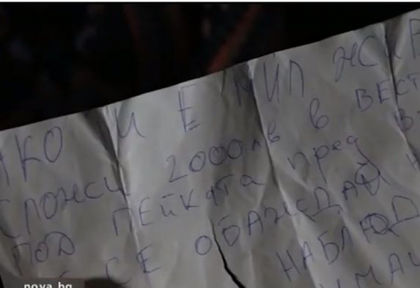 АКО И Е МИЛ
СЛОЖИ 2000 лв в ВЕСТ
ПОД ПЕЙКАТА пред
СЕ ОБАЖДАЙ
НАБЛЮД
nova.bg